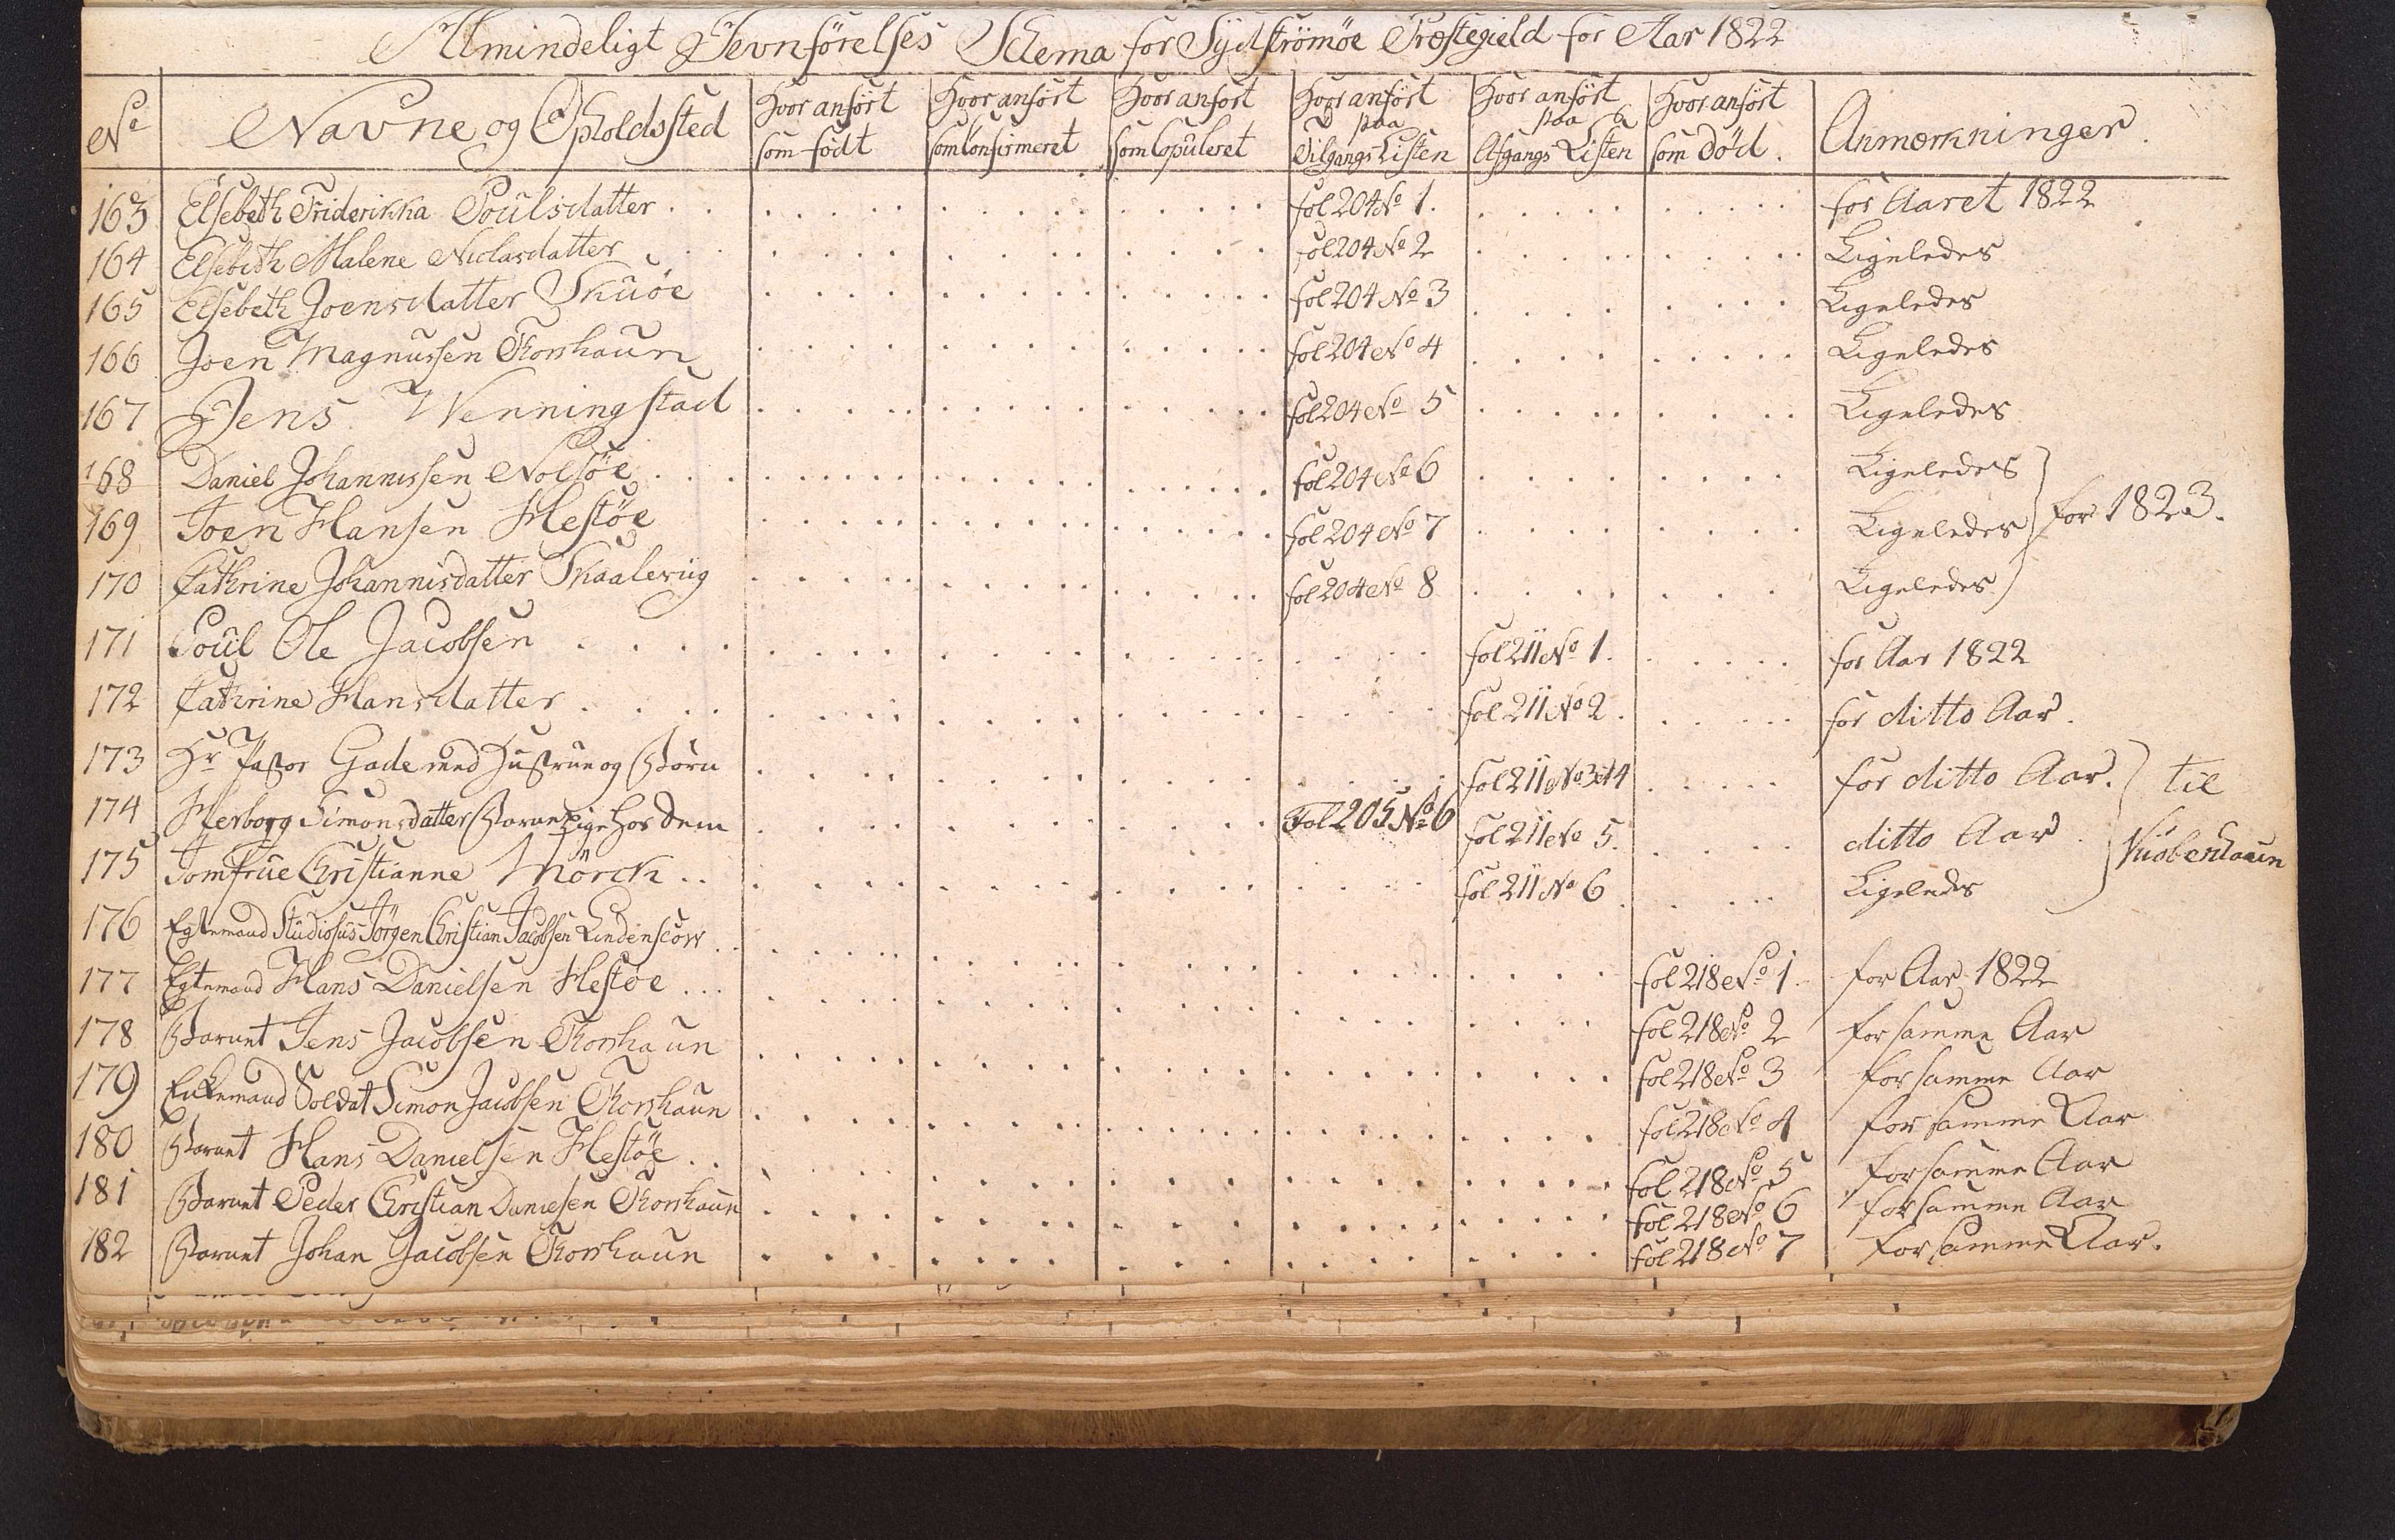 Almindeligt Jevnförelses Schema for Sydströmöe Præstegield for Aar 1822
No | Navne og Opholdssted | Hvor anfört som födt | Hvor anfört som Confirmeret | Hvor anfört som Copuleret | Hvor anfört paa Tilgangs Listen | Hvor anfört paa Afgangs Listen | Hvor anfört som död. | Anmærkninger.
163 Elsebeth Friderikka Poulsdatter . . fol 204 No 1. for Aaret 1822
164 Elsebeth Malene Niclasdatter fol 204 No 2 Ligeledes
165 Elsebeth Joensdatter Skuöe fol 204 No 3 Ligeledes
166 Joen Magnussen Thorshaun fol 204 No 4 Ligeledes
167 Jens Wenningstad fol 204 No 5 Ligeledes
168 Daniel Johannissen Nolsöe fol 204 No 6 Ligeledes
169 Joen Hansen Hestöe fol 204 No 7 Ligeledes for 1823.
170 Cathrine Johannisdatter Skaalevüg fol 204 No 8 Ligeledes
171 Poul Ole Jacobsen fol 211 No 1. for Aar 1822
172 Cathrine Hansdatter fol 211 No 2. for ditto Aar.
173 Hr Pastor Gade med Hustrue og Börn fol 211 No 3 et 4 for ditto Aar. til
174 Herborg Simonsdatter Barnepige hos dem Fol 205 No 6 fol 211 No 5. ditto Aar Kiöbenhaun
175 Jomfrue Christianne Mörch . . fol 211 No 6 Ligeledes
176 Egtemand Studiosus Jörgen Christian Jacobsen Lindenscow . . fol 218 No 1. for Aar 1822
177 Egtemand Hans Danielsen Hestöe . . . fol 218 No 2 for samme Aar
178 Barnet Jens Jacobsen Thorshaun fol 218 No 3 for samme Aar
179 Enkemand Soldat Simon Jacobsen Thorshaun fol 218 No 4 for samme Aar
180 Barnet Hans Danielsen Hestöe . . fol 218 No 5 for samme Aar
181 Barnet Peder Christian Danielsen Thorshaun fol 218 No 6 for samme Aar
182 Barnet Johan Jacobsen Thorshaun fol 218 No 7 for samme Aar.